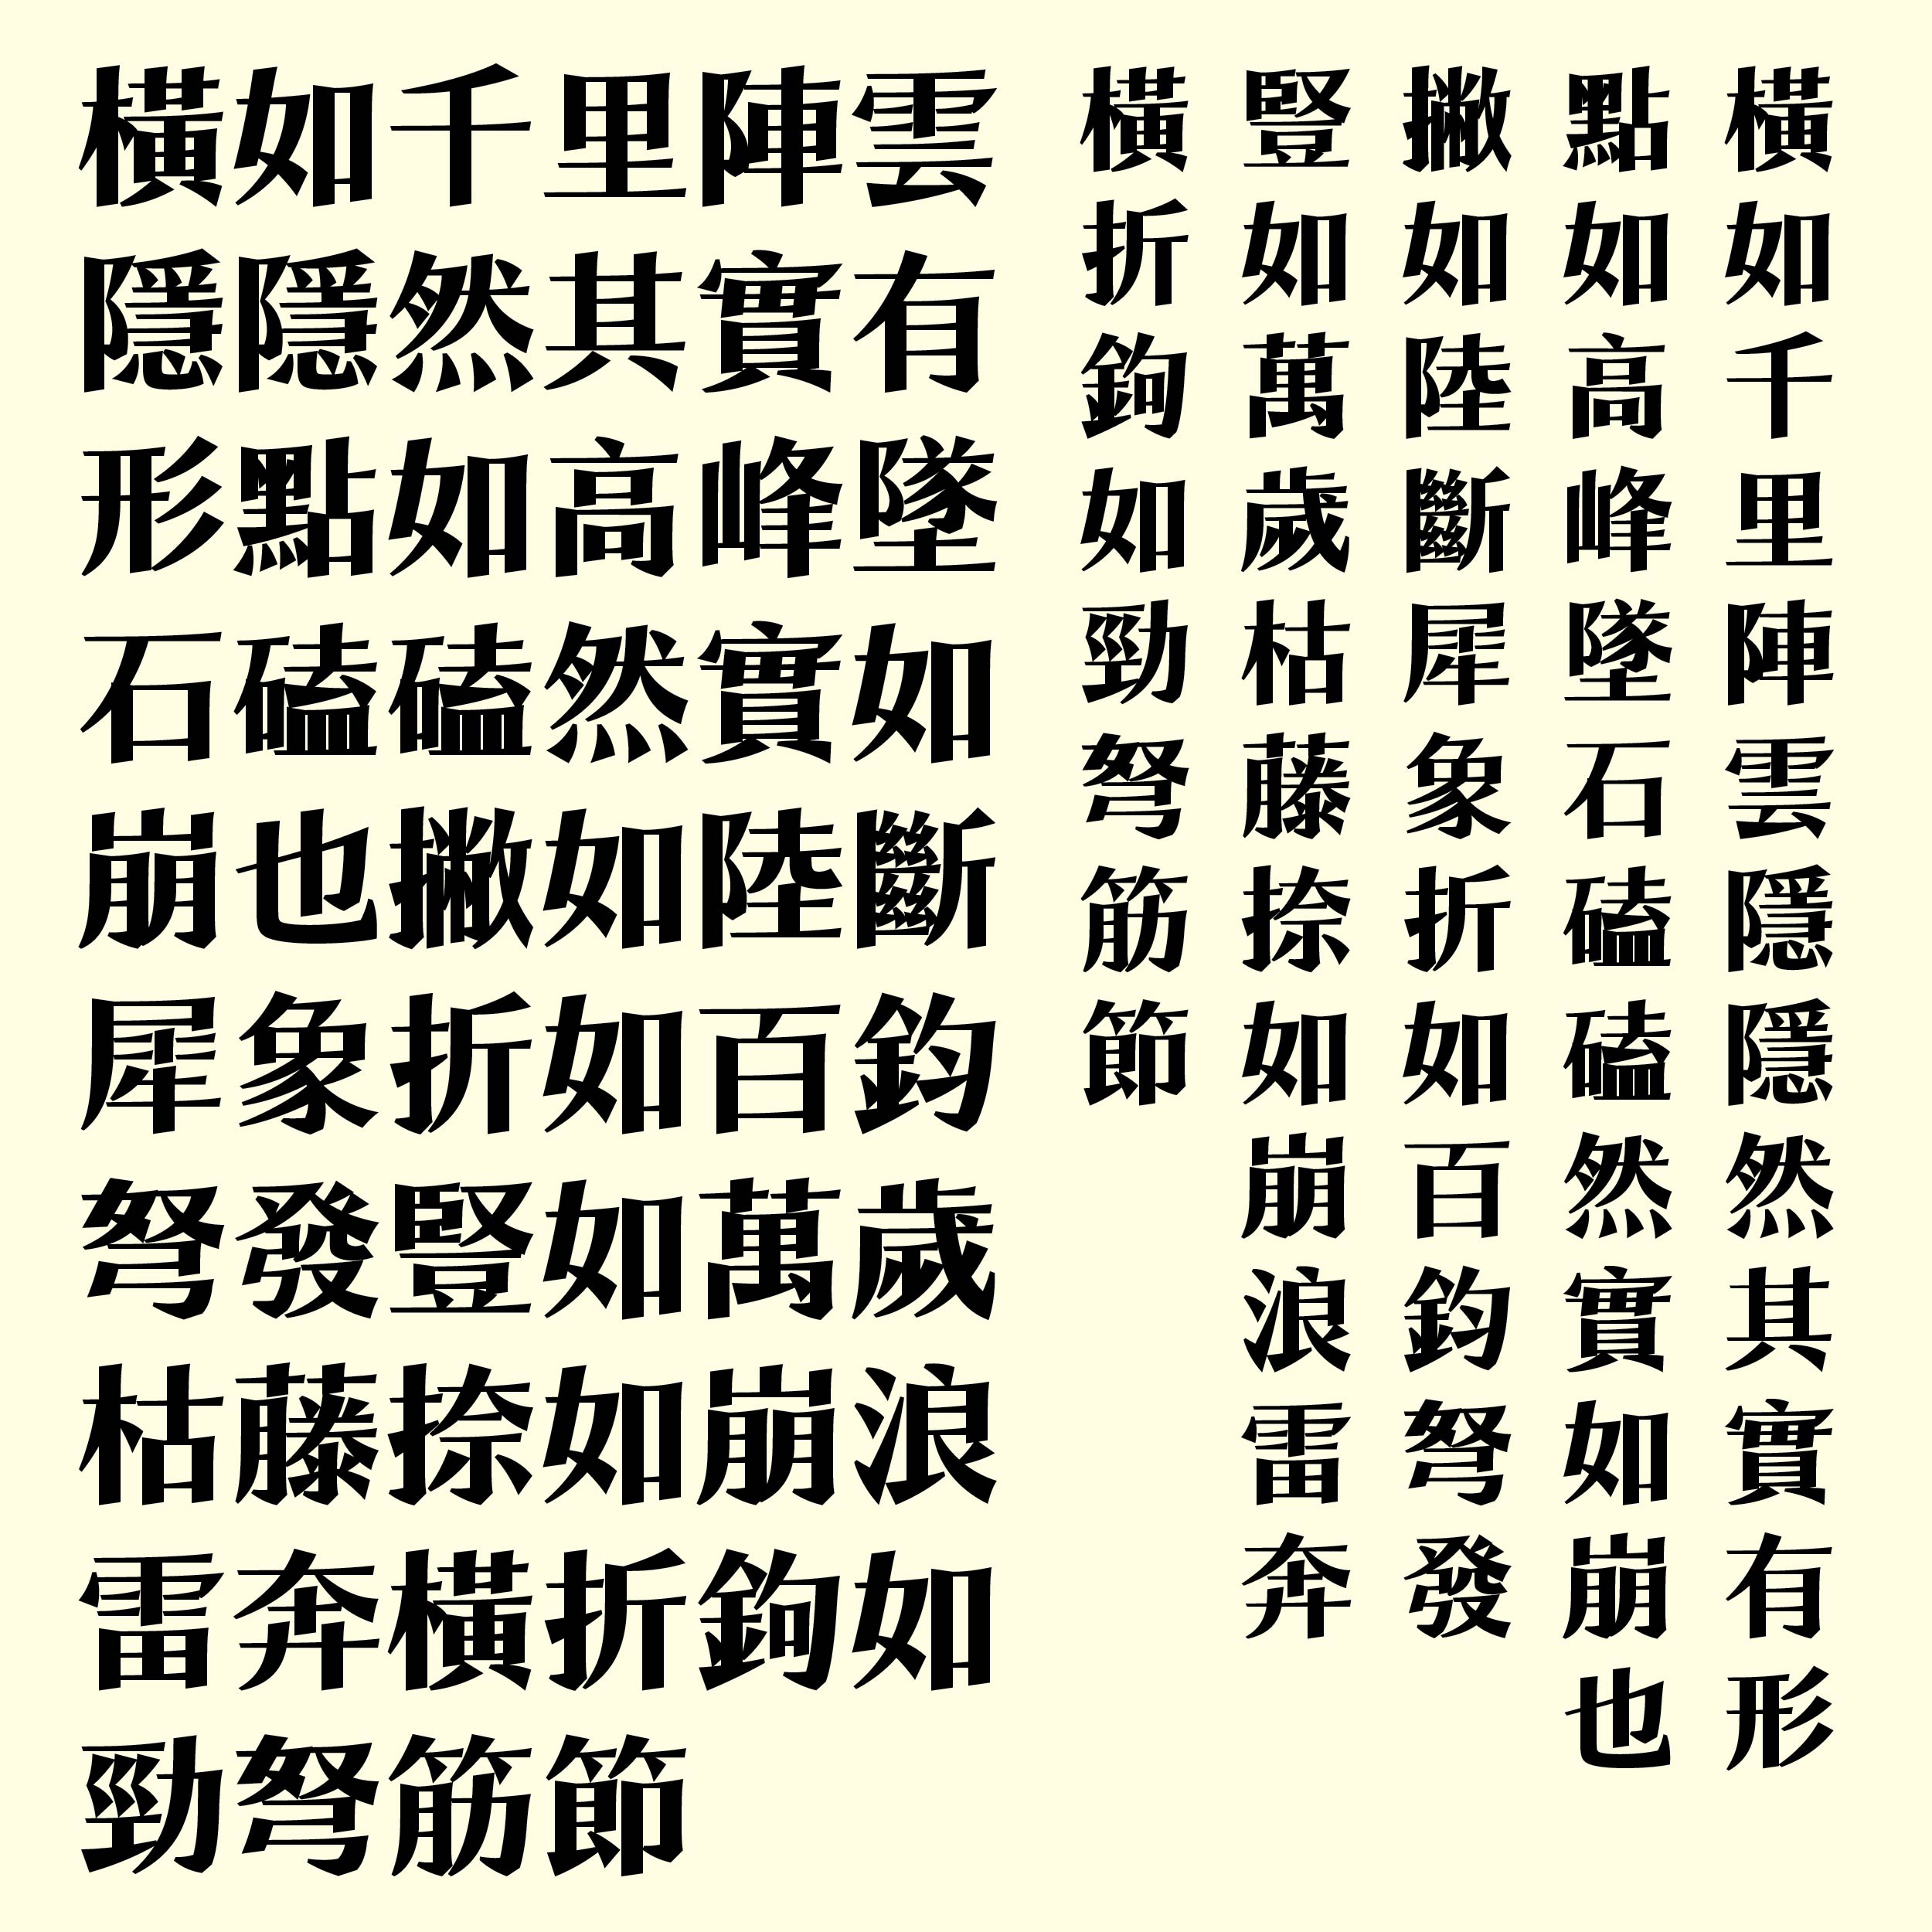 橫如千里陣雲
隱隱然其實有
形點如高峰墜
石磕磕然實如
崩也撇如陸斷
犀象折如百鈞
弩發豎如萬歲
枯藤捺如崩浪
雷奔橫折鉤如
勁弩筋節
橫如千里陣雲隱隱然其實有形
點如高峰墜石磕磕然實如崩也
撇如陸斷犀象折如百鈞弩發
豎如萬歲枯藤捺如崩浪雷奔
橫折鉤如勁弩筋節